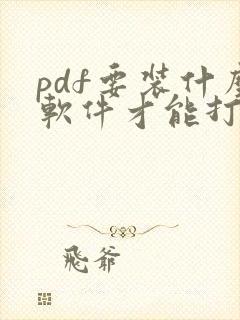 pdf要裝什麼
軟件才能打
飛爺